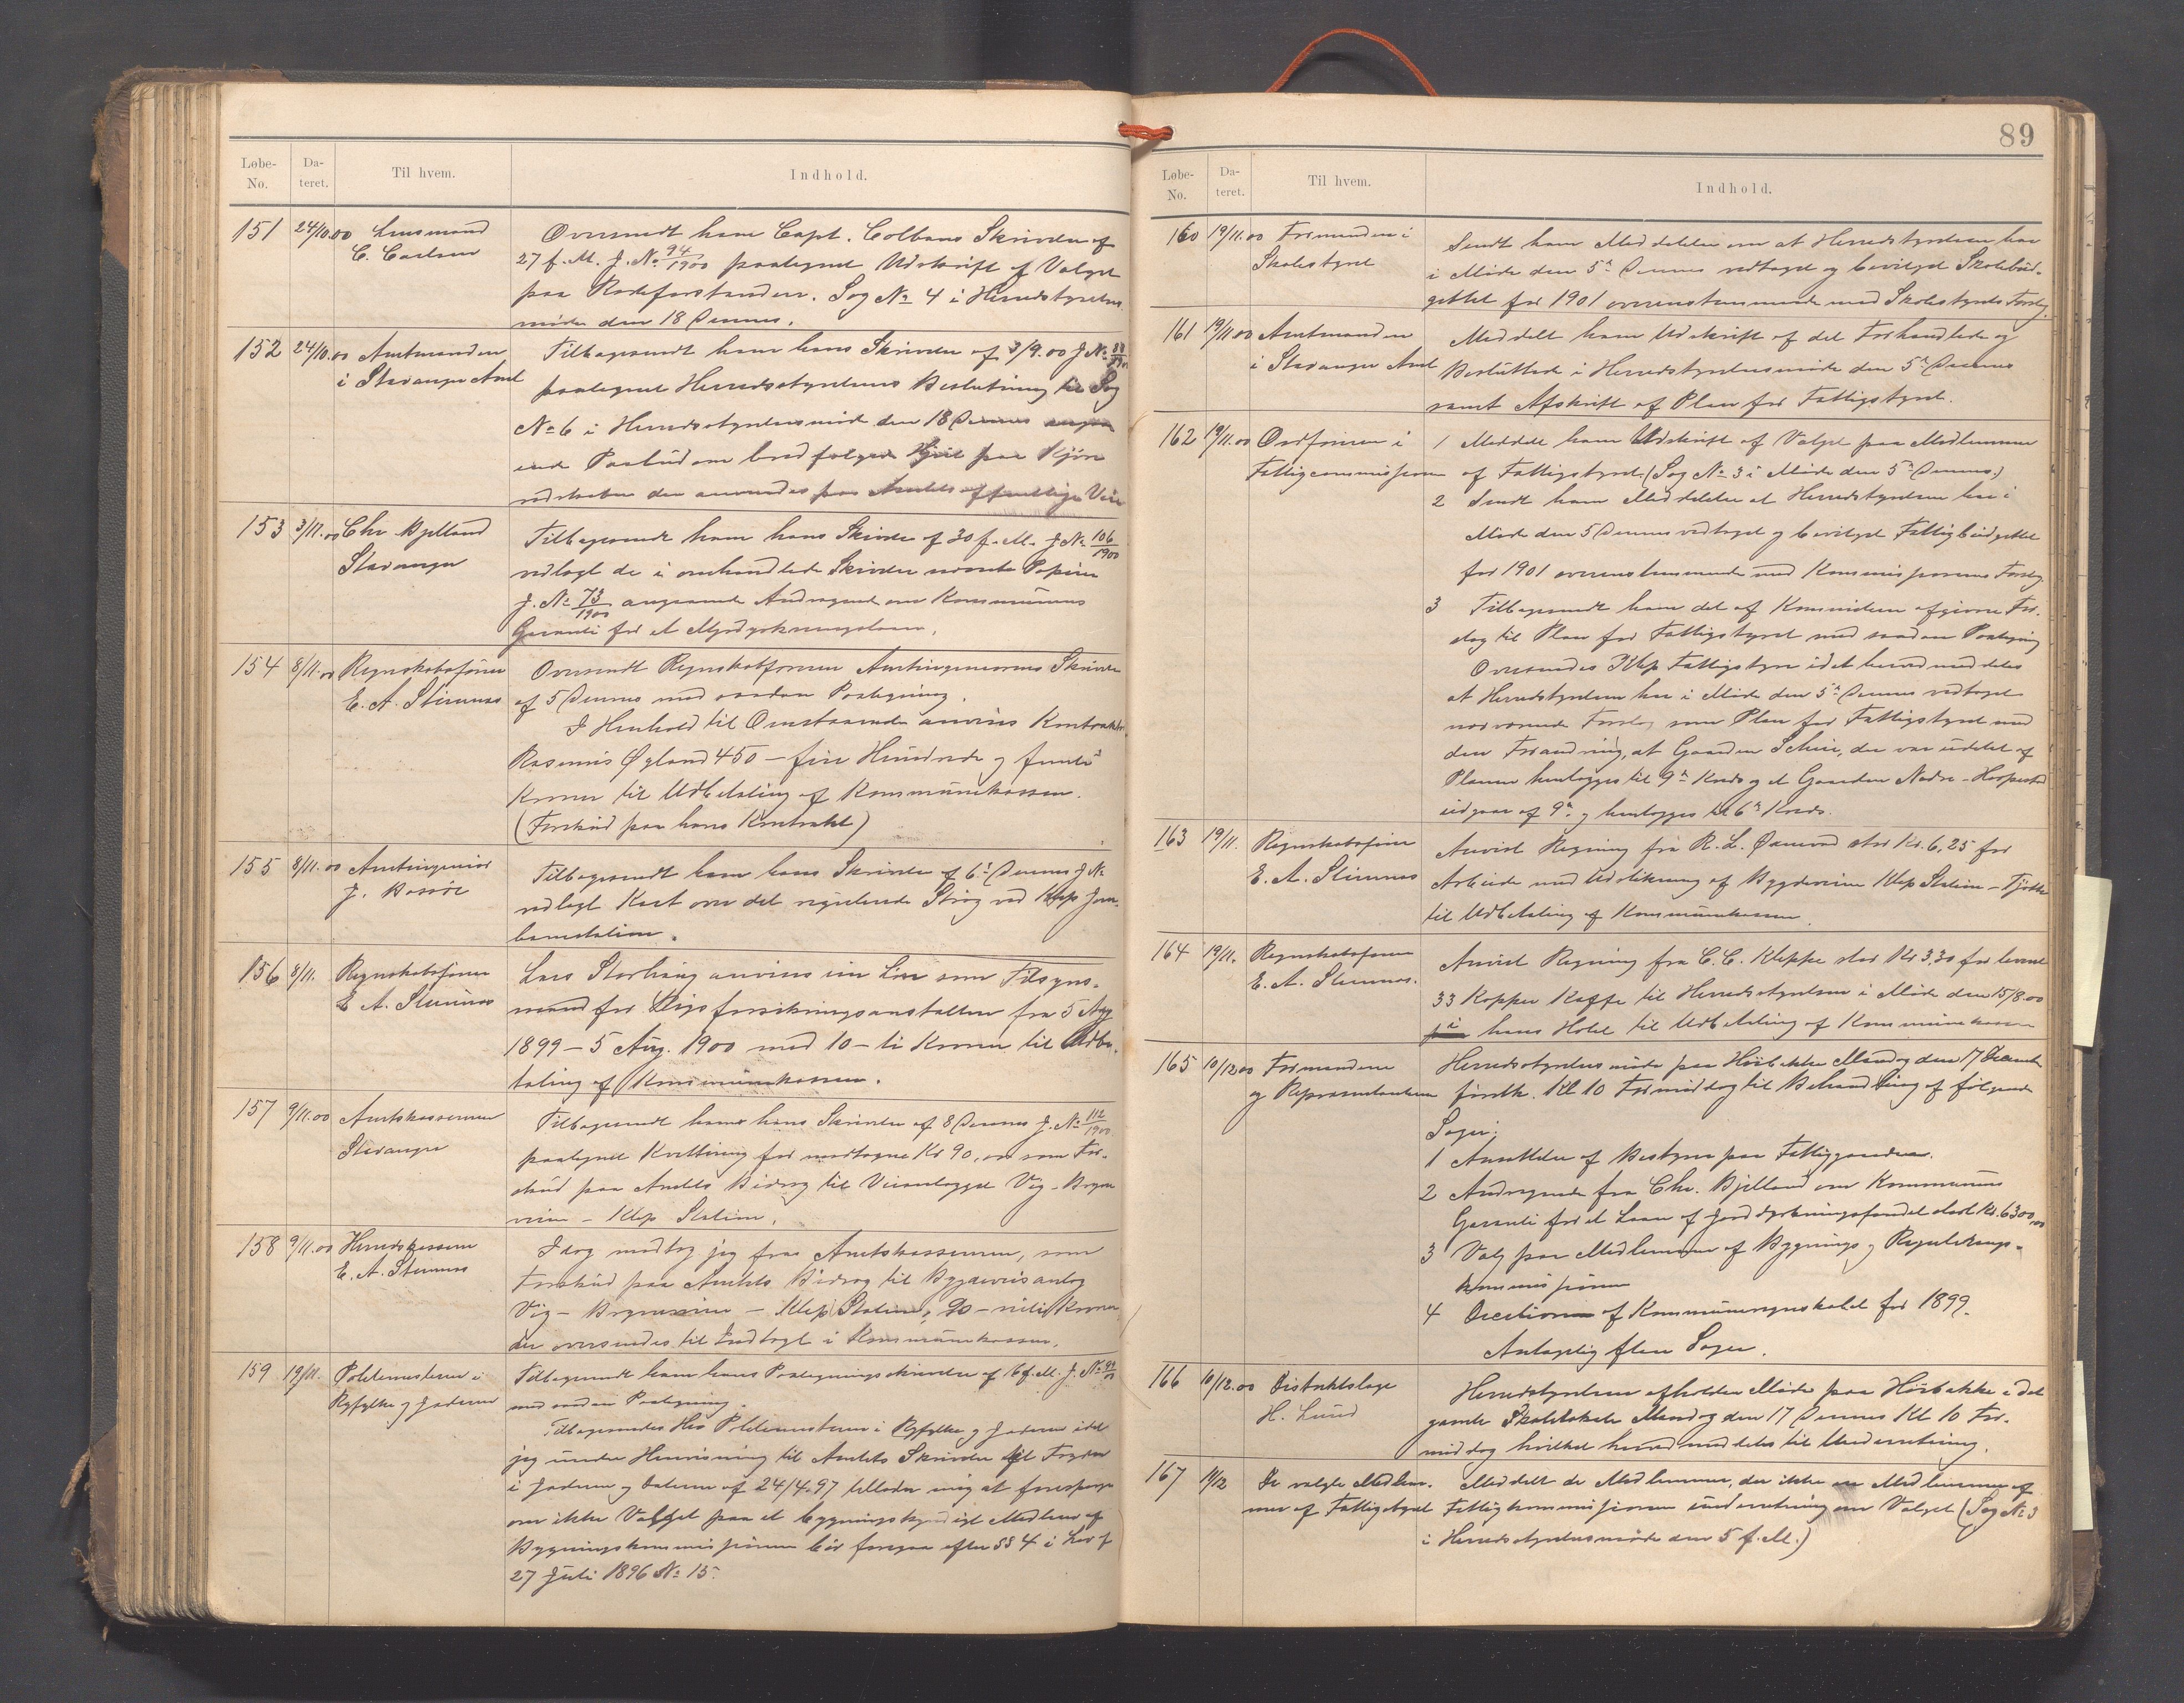 Løbe-No. Da-teret. Til hvem. Indhold.
151 24/10.00 Lensmand C. Carlsen
Oversendt ham Capt. Colbans Skrivelse af
27 f. M. J. No 94/1900 paategnet Udskrift af Valget
paa Rodeforstander. Sag No 4 i Herredstyrelses
møde den 18 Dennes.
152 24/10.00 Amtmanden i Stavanger Amt
Tilbagesendt ham hans Skrivelse af 3/9.00 J No
paategnet Herredsstyrelsens Beslutning til Sag
No 6 i Herredsstyrelsesmøde den 18 Dennes angaa
ende Paabud om bredfælgede Hjul paa Kjøre
redskaber der anvendes paa Amtets offentlige Veie
153 3/11.00 Chr Bjelland Stavanger
Tilbagesendt ham hans Skrivelse af 30 f. M. J No 106/1900
vedlagt de i omhandlede Skrivelse nævnte Papirer
J. No 73/1900 angaaende Andragende om Kommunens
Garanti for et Myrdyrkningslaan.
154 8/11.00 Regnskabsfører E. A. Stimnes
Oversendt Regnskabsføreren Amtsingeniørens Skrivelse
af 5 Dennes med saadan Paategning.
I Henhold til Omstaaende anvises Kontraktør
Rasmus Øgland 450 – fire Hundrede og femti
Kroner til Udbetaling af Kommunekassen.
(Forskud paa hans Kontrakt)
155 8/11.00 Amtsingeniør J. Bassøe
Tilbagesendt ham hans Skrivelse af 6te Dennes J No
vedlagt Kart over det regulerede Strøg ved Klep Jern-
banestation.
156 8/11. Regnskabsfører E A. Stimnes
Lars Storhaug anvises sin Løn som Tilsyns-
mand for Sigsforsikringsanstalten fra 5 Aug
1899 – 5 Aug. 1900 med 10 – ti Kroner til Udbe-
taling af Kommunekassen.
157 9/11.00 Amtskassereren Stavanger
Tilbagesendt ham hans Skrivelse af 8 Dennes J. No 112/1900
paategnet Kvittering for modtagne Kr 90,00 som For-
skud paa Amtets Bidrag til Veianlægget Vig – Bryne
veien – Klep Station.
158 9/11.00 Herredskasserer E. A. Stimnes
Idag modtog jeg fra Amtskassereren, som
Forskud paa Amtets Bidrag til Bygdeveisanlæg
Vig – Bryneveien – Klep Station, 90 – nitti Kroner
der oversendes til Indtægt i Kommunekassen.
159 19/11. Politimesteren i Ryfylke og Jæderen
Tilbagesendt ham hans Paategningsskrivelse af 16 f. M. J. No
med saadan Paategning.
Tilbagesendes Hr. Politimesteren i Ryfylke og Jæderen idet
jeg under Henvisning til Amtets Skrivelse til Fogden
i Jæderen og Dalerne af 24/4.97 tillader mig at forespørge
om ikke Valget paa et bygningskyndigt Medlem af
Bygningskommissionen bør foregaa efter §§ 4 i Lov af
27 Juli 1896 No 15.
89
Løbe-No. Da-teret. Til hvem. Indhold.
160 19/11.00 Formanden i Skolestyret
Sendt ham Meddelelse om at Herredstyrelsen har
i Møde den 5te Dennes vedtaget og bevilget Skolebud-
gettet for 1901 overensstemmende med Skolestyrets Forslag.
161 19/11.00 Amtmanden i Stavanger Amt
Meddelt ham Udskrift af det Forhandlede og
Besluttede i Herredstyrelsesmøde den 5te Dennes
samt Afskrift af Plan for Fattigstyret.
162 19/11.00 Ordføreren i Fattigcommissionen
1 Meddelt ham Udskrift af Valget paa Medlemmer
af Fattigstyret (Sag No 3 i Møde den 5te Dennes.)
2 Sendt ham Meddelelse at Herredstyrelsen har i
Møde den 5 Dennes vedtaget og bevilget Fattigbudgettet
for 1901 overensstemmende med Kommissionens Forslag.
3 Tilbagesendt ham det af Komiteen afgivne For-
slag til Plan for Fattigstyret med saadan Paategning
Oversendes Klep Fattigstyre idet herved meddeles
at Herredstyrelsen har i Møde den 5te Dennes vedtaget
nærværende Forslag som Plan for Fattigstyret med
den Forandring, at Gaarden Schie, der var udelat af
Planen henlægges til 9de Kreds og at Gaarden Nedre-Horpestad
udgaar af 9de og henlægges til 6te Kreds.
163 19/11. Regnskabsfører E. A. Stimnes
Anvist Regning fra R. L. Øxnevad stor Kr. 6,25 for
Arbeide med Udstikning af Bygdeveien Klep Station – Tjøtta
til Udbetaling af Kommunekassen.
164 19/11. Regnskabsfører E. A. Stimnes.
Anvist Regning fra C. C. Kleppe stor Kr 3,30 for leveret
33 Kopper Kaffe til Herredsstyrelsen i Møde den 15/8.00
i hans Hotel til Udbetaling af Kommunekassen
165 10/12.00 Formændene og Repræsentanterne
Herredsstyrelsesmøde paa Hørbakke Mandag den 17 Decembr
førstk. Kl 10 Formiddag til Behandling af følgende
Sager:
1 Ansættelse af Bestyrer paa Fattiggaarden.
2 Andragende fra Chr. Bjelland om Kommunens
Garanti for et Laan af Jorddyrkningsfondet stort Kr. 6300,00
3 Valg paa Medlemmer af Bygnings og Regulerings-
kommissionen
4 Decision af Kommuneregnskabet for 1899.
Antagelig flere Sager.
166 10/12.00 Distriktslæge H. Lund
Herredstyrelsen afholder Møde paa Hørbakke i det
gamle Skolelokale Mandag den 17 Dennes Kl 10 For-
middag hvilket herved meddeles til Underretning.
167 11/12 De valgte Medlem-mer af Fattigstyret
Meddelt de Medlemmer, der ikke er Medlemmer af
Fattigkommissionen underretning om Valget (Sag No 3
i Herredsstyrelsesmøde den 5 f. M.)